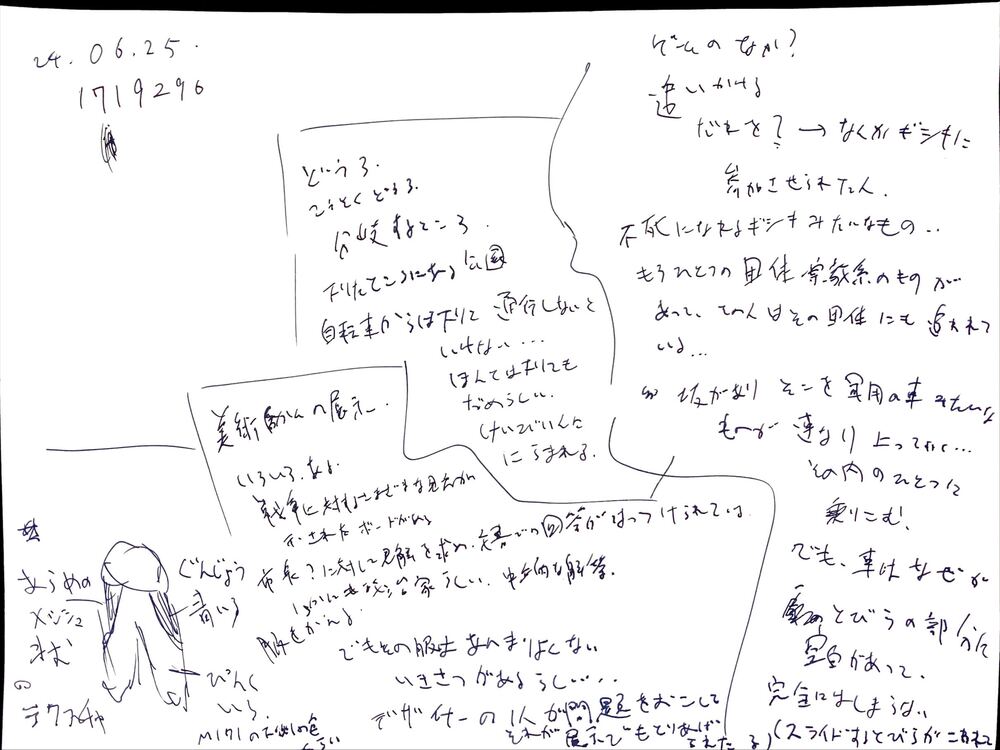 24.06.25.
1719296
ゲームのなか?
追いかける
だれを?→なんかギシキに
参加させられた人.
不死になれるギシキみたいなもの..
もうひとつの団体 宗教系のものが
あって、その人はその団体にも追われて
いる...
坂があり そこを軍用の車みたいな
ものが連なり上ってく...
その内のひとつに
乗りこむ!
でも、車はなぜか
とびらの部分に
空白があって、
完全にはしまらない
(スライドするとびらがこわれて
どうろ.
こうそくどうろ.
分岐するところ.
下りたところにある公園
自転車からは下りて通行しないと
いけない...
ほんとは下りても
だめらしい.
けいびいんに
にらまれる.
美術かんの展示.
いろいろある.
戦争に対するさまざまな見方が
示されたボードがある
に対して見解を求め、文書での回答がはっつけられている.
ほかにも政治家らしい、中立的な解答.
服をかんる
でもその服はあんまりよくない
いきさつがあるらしい....
デザイナーの1人が問題をおこして
それが展示でもとりあげ
られたる
あらめの
メッシュ
きじ
の
テクスチャ
ぐんじょう
青いろ
ぴんく
いろ.